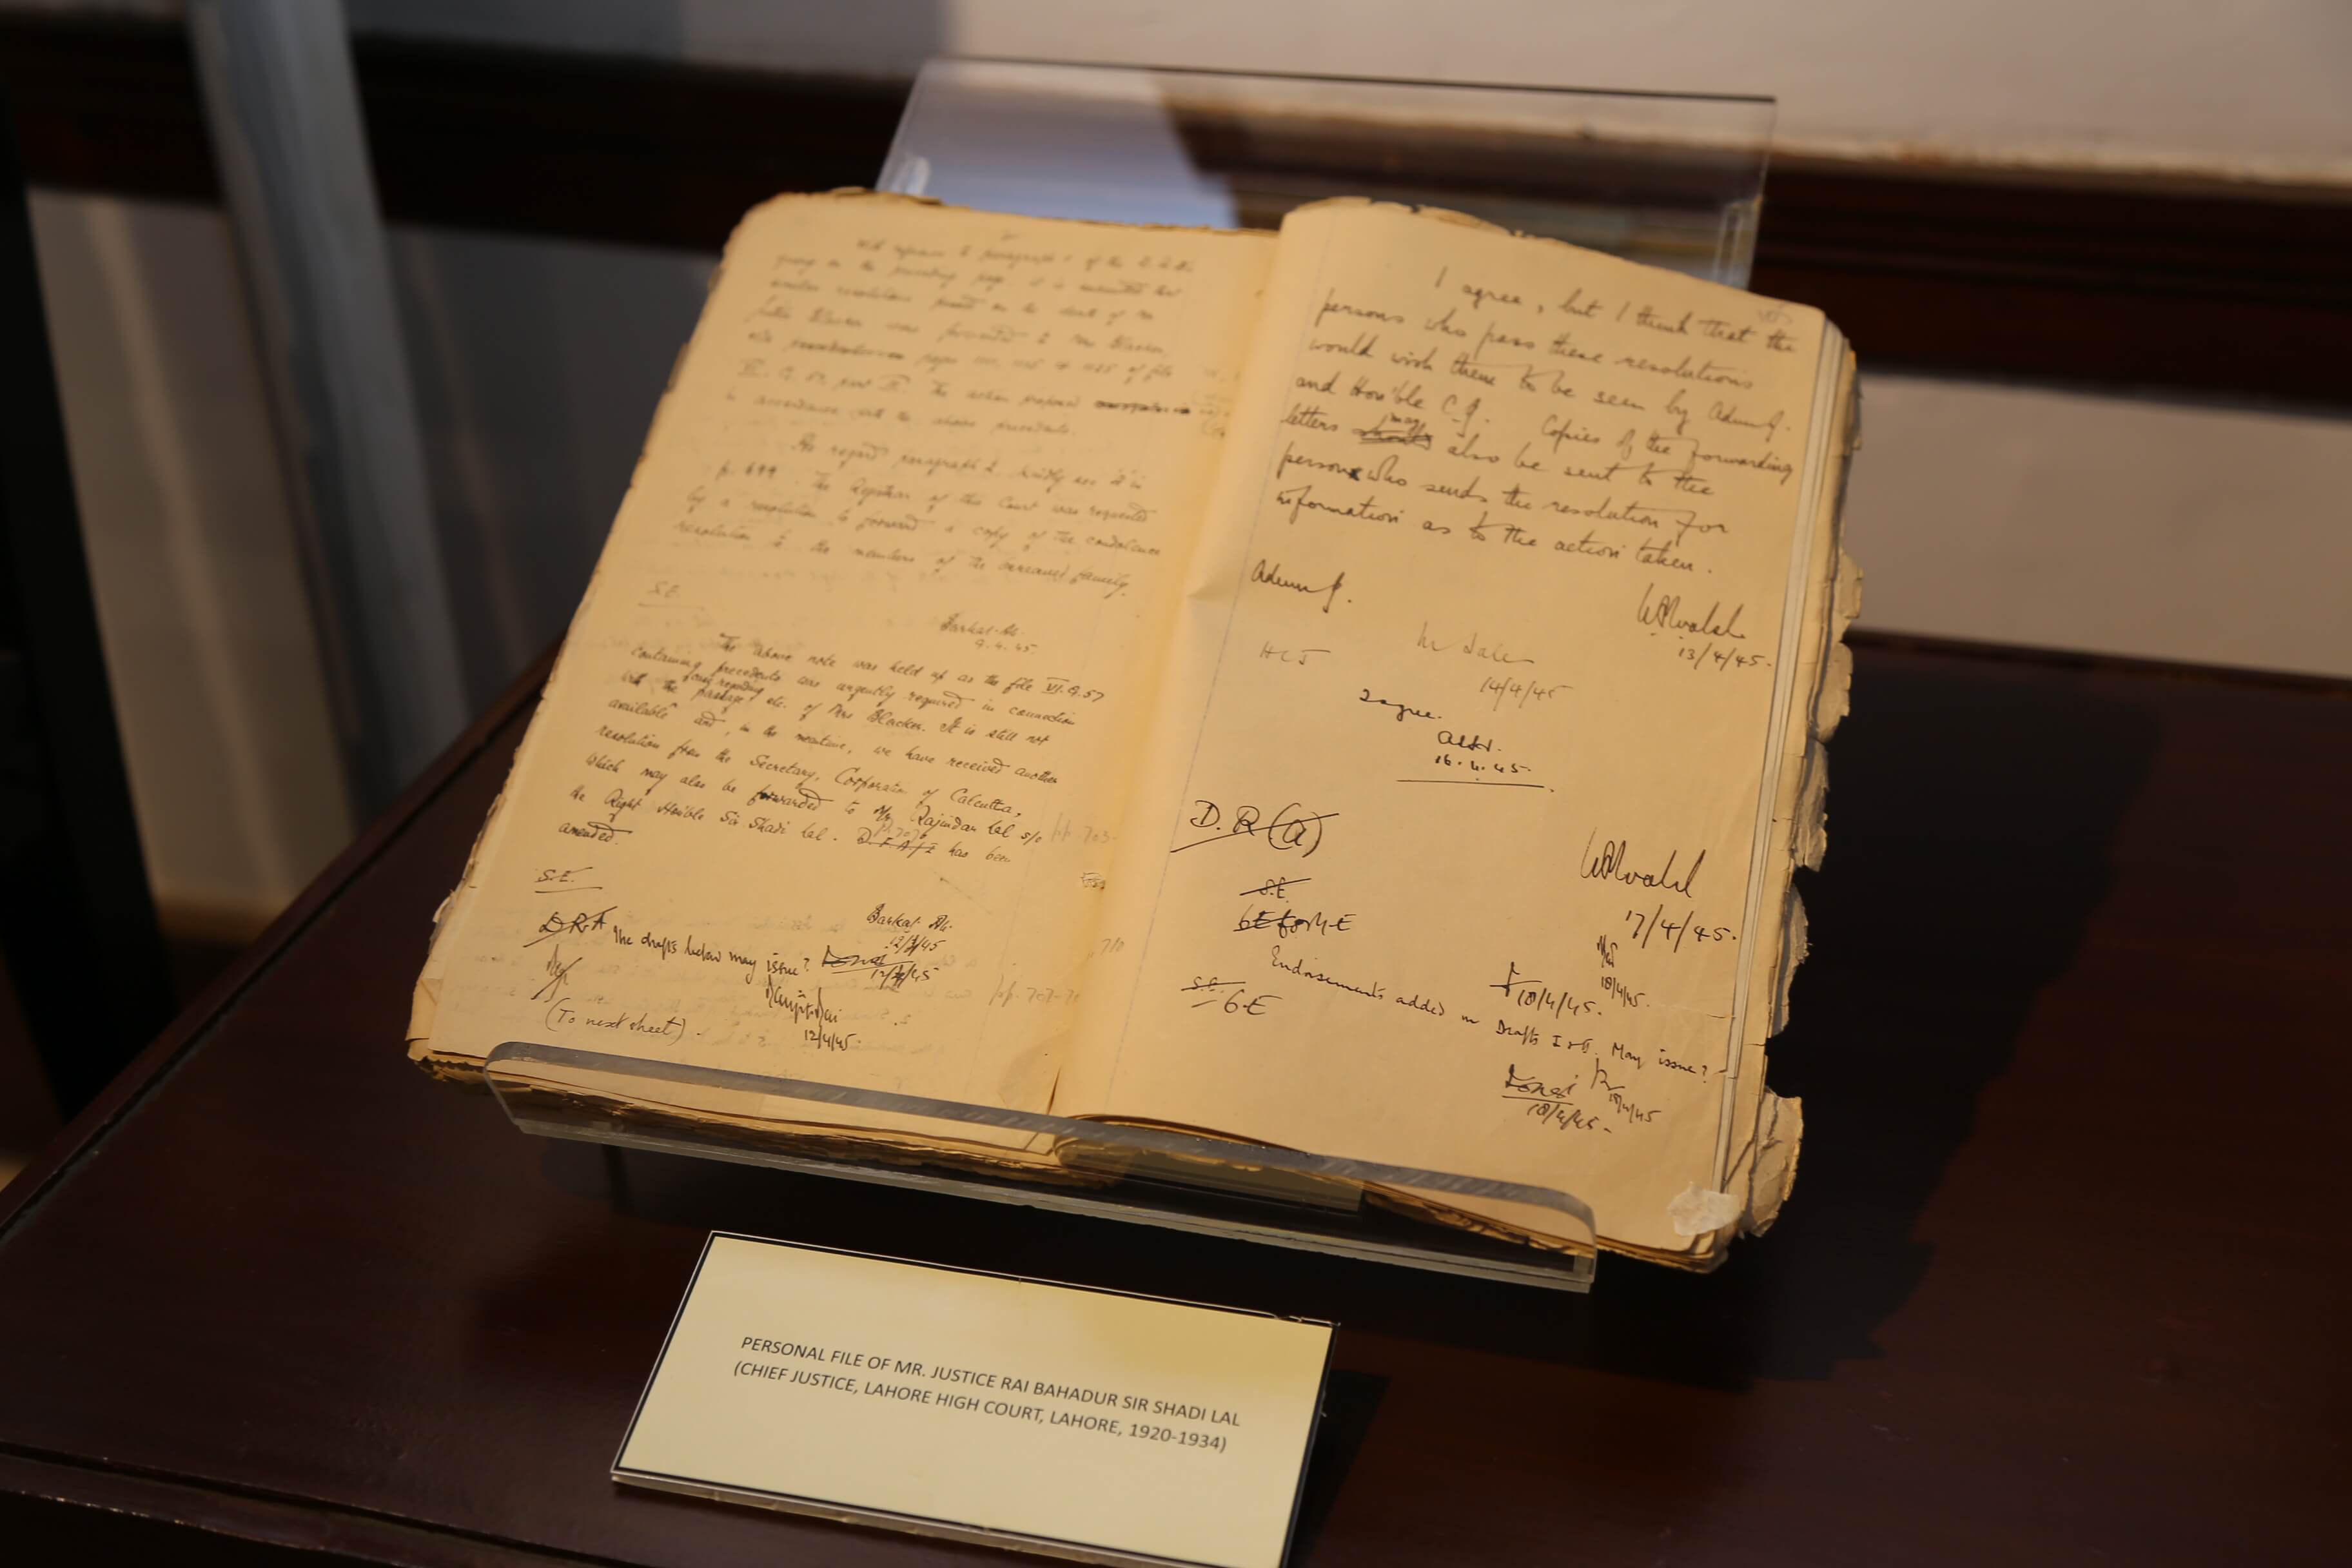 With reference to paragraph 1 of the
on the preceding page it is submitted that
similar resolutions passed on the death of Mr
Justice Blacker was forwarded to Mrs Blacker,
vide pages of file
VI. G. 57, part The action proposed
in accordance with the above precedents.
As regard paragraph 2, kindly see 'A' in
p. 699. The Registrar of this Court was requested
by a resolution to forward a copy of the condolence
resolution to the members of the bereaved family.
S.E.
Barkat Ali
9.4.45
The above note was held up as the file VI.G.57
containing precedents was urgently required in connection
with the passage, etc. of Mrs Blacker. It is still not
available and, in the meantime, we have received another
resolution from the Secretary, Corporation of Calcutta,
which may also be forwarded to Mr Rajindar Lal s/o
the Right Hon'ble Sir Shadi Lal. D.F.A. I has been
amended.
pp. 703-
S.E.
Barkat Ali
12/4/45
D.R.A The drafts below may issue?
12/4/45
710
pp. 707-70
Ranjit Rai
12/4/45.
(To next sheet).
I agree, but I think that the
persons who pass these resolutions
would wish them to be seen by Admn J.
and Hon'ble C.J. Copies of the forwarding
letters may also be sent to the
person who sends the resolution for
information as to the action taken.
Admn J.
13/4/45.
M Sale
HCJ
14/4/45
I agree.
16.4.45.
D.R(A)
17/4/45.
S.E.
18/4/45.
18/4/45.
Endorsements added on Drafts I & II. May issue?
S.E. 6-E
18/4/45
18/4/45.
PERSONAL FILE OF MR. JUSTICE RAI BAHADUR SIR SHADI LAL
(CHIEF JUSTICE, LAHORE HIGH COURT, LAHORE, 1920-1934)